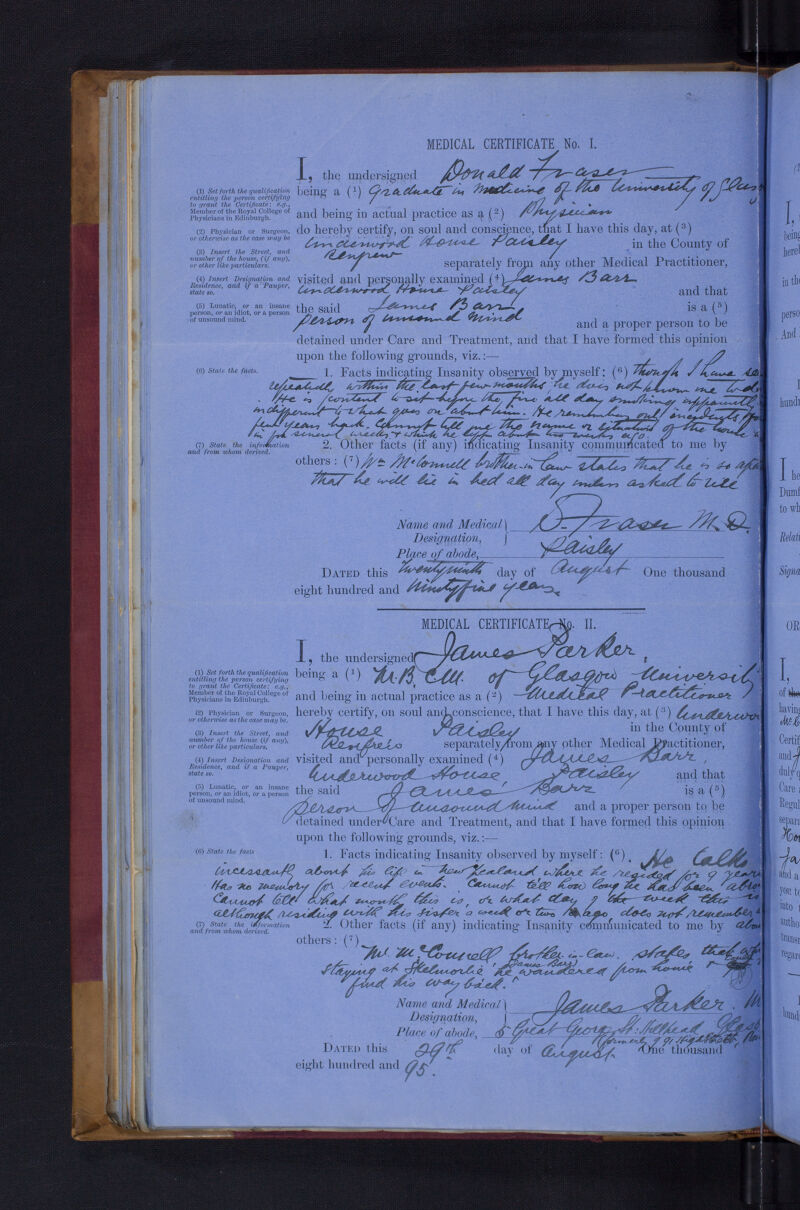 MEDICAL CERTIFICATE No. I.
I, the undersigned Donald Fraser
(1) Set forth the qualification entitling the person certifying to grant the Certificate; e.g., Member of the Royal College of Physicians in Edinburgh.
being a (1) Graduate in Medicine of the University of Glas
and being in actual practice as a (2) Physician
(2) Physician or Surgeon, or otherwise as the case may be
do hereby certify, on soul and conscience, that I have this day, at (3)
(3) Insert the Street, and number of the house, (if any), or other like particulars.
Underwood House Paisley in the County of
Renfrew separately from any other Medical Practitioner,
(4) Insert Designation and Residence, and if a Pauper, state so.
visited and personally examined (4) James Barr
Underwood House Paisley and that
(5) Lunatic, or an insane person, or an idiot, or a person of unsound mind.
the said James Barr is a (5)
person of unsound mind and a proper person to be
detained under Care and Treatment, and that I have formed this opinion
upon the following grounds, viz.:—
(6) State the facts.
1. Facts indicating Insanity observed by myself: (6) Though I have
repeatedly within the last few months he does not
He is content to sit before the fire all day smoking apparently
indifferent to what goes on about him. He remembers only incidents
few years back. Cannot tell me the name or situation of the house
several weeks & which he left about two weeks ago.
(7) State the information and from whom derived.
2. Other facts (if any) indicating Insanity communicated to me by
others: (7) Wm McConnell brother-in-law states that he is so
that he will lie in bed all day unless asked to rise
Name and Medical Designation, D. Fraser M.D.
Place of abode, Paisley
DATED this Twentyninth day of August One thousand
eight hundred and Ninetyfive years.
MEDICAL CERTIFICATE No. II.
I, the undersigned James Parker,
(1) Set forth the qualification entitling the person certifying to grant the Certificate; e.g., Member of the Royal College of Physicians in Edinburgh.
being a (1) M.B, C.M. of Glasgow Universit
and being in actual practice as a (2) Medical Practitioner
(2) Physician or Surgeon, or otherwise as the case may be.
hereby certify, on soul and conscience, that I have this day, at (3) Underwo
(3) Insert the Street, and number of the house (if any), or other like particulars.
House Paisley in the County of
Renfrew separately from any other Medical Practitioner,
(4) Insert Designation and Residence, and if a Pauper, state so.
visited and personally examined (4) James Barr,
Underwood House, Paisley and that
(5) Lunatic, or an insane person, or an idiot, or a person of unsound mind.
the said James Barr is a (5)
person of unsound mind and a proper person to be
detained under Care and Treatment, and that I have formed this opinion
upon the following grounds, viz.:—
(6) State the facts
1. Facts indicating Insanity observed by myself: (6), He talks
incessantly about his life in New Zealand where he resided for 9 years
Has no memory for recent events. Cannot tell how long he has been
Cannot tell what month this is, or what day of the week this is
although residing with his sister a week or two ago, does not remember
(7) State the information and from whom derived.
2. Other facts (if any) indicating Insanity communicated to me by
others: (7)
Mr. McConnell, brother-in-law, states that
staying at Skelmorlie, he (James Barr) wandered from home &
find his way back.
Name and Medical Designation, James Parker. M
Place of abode, 5 Great George St: Hillhead
formerly of 91 High Street,
DATED this 29th day of August One thousand
eight hundred and 95.